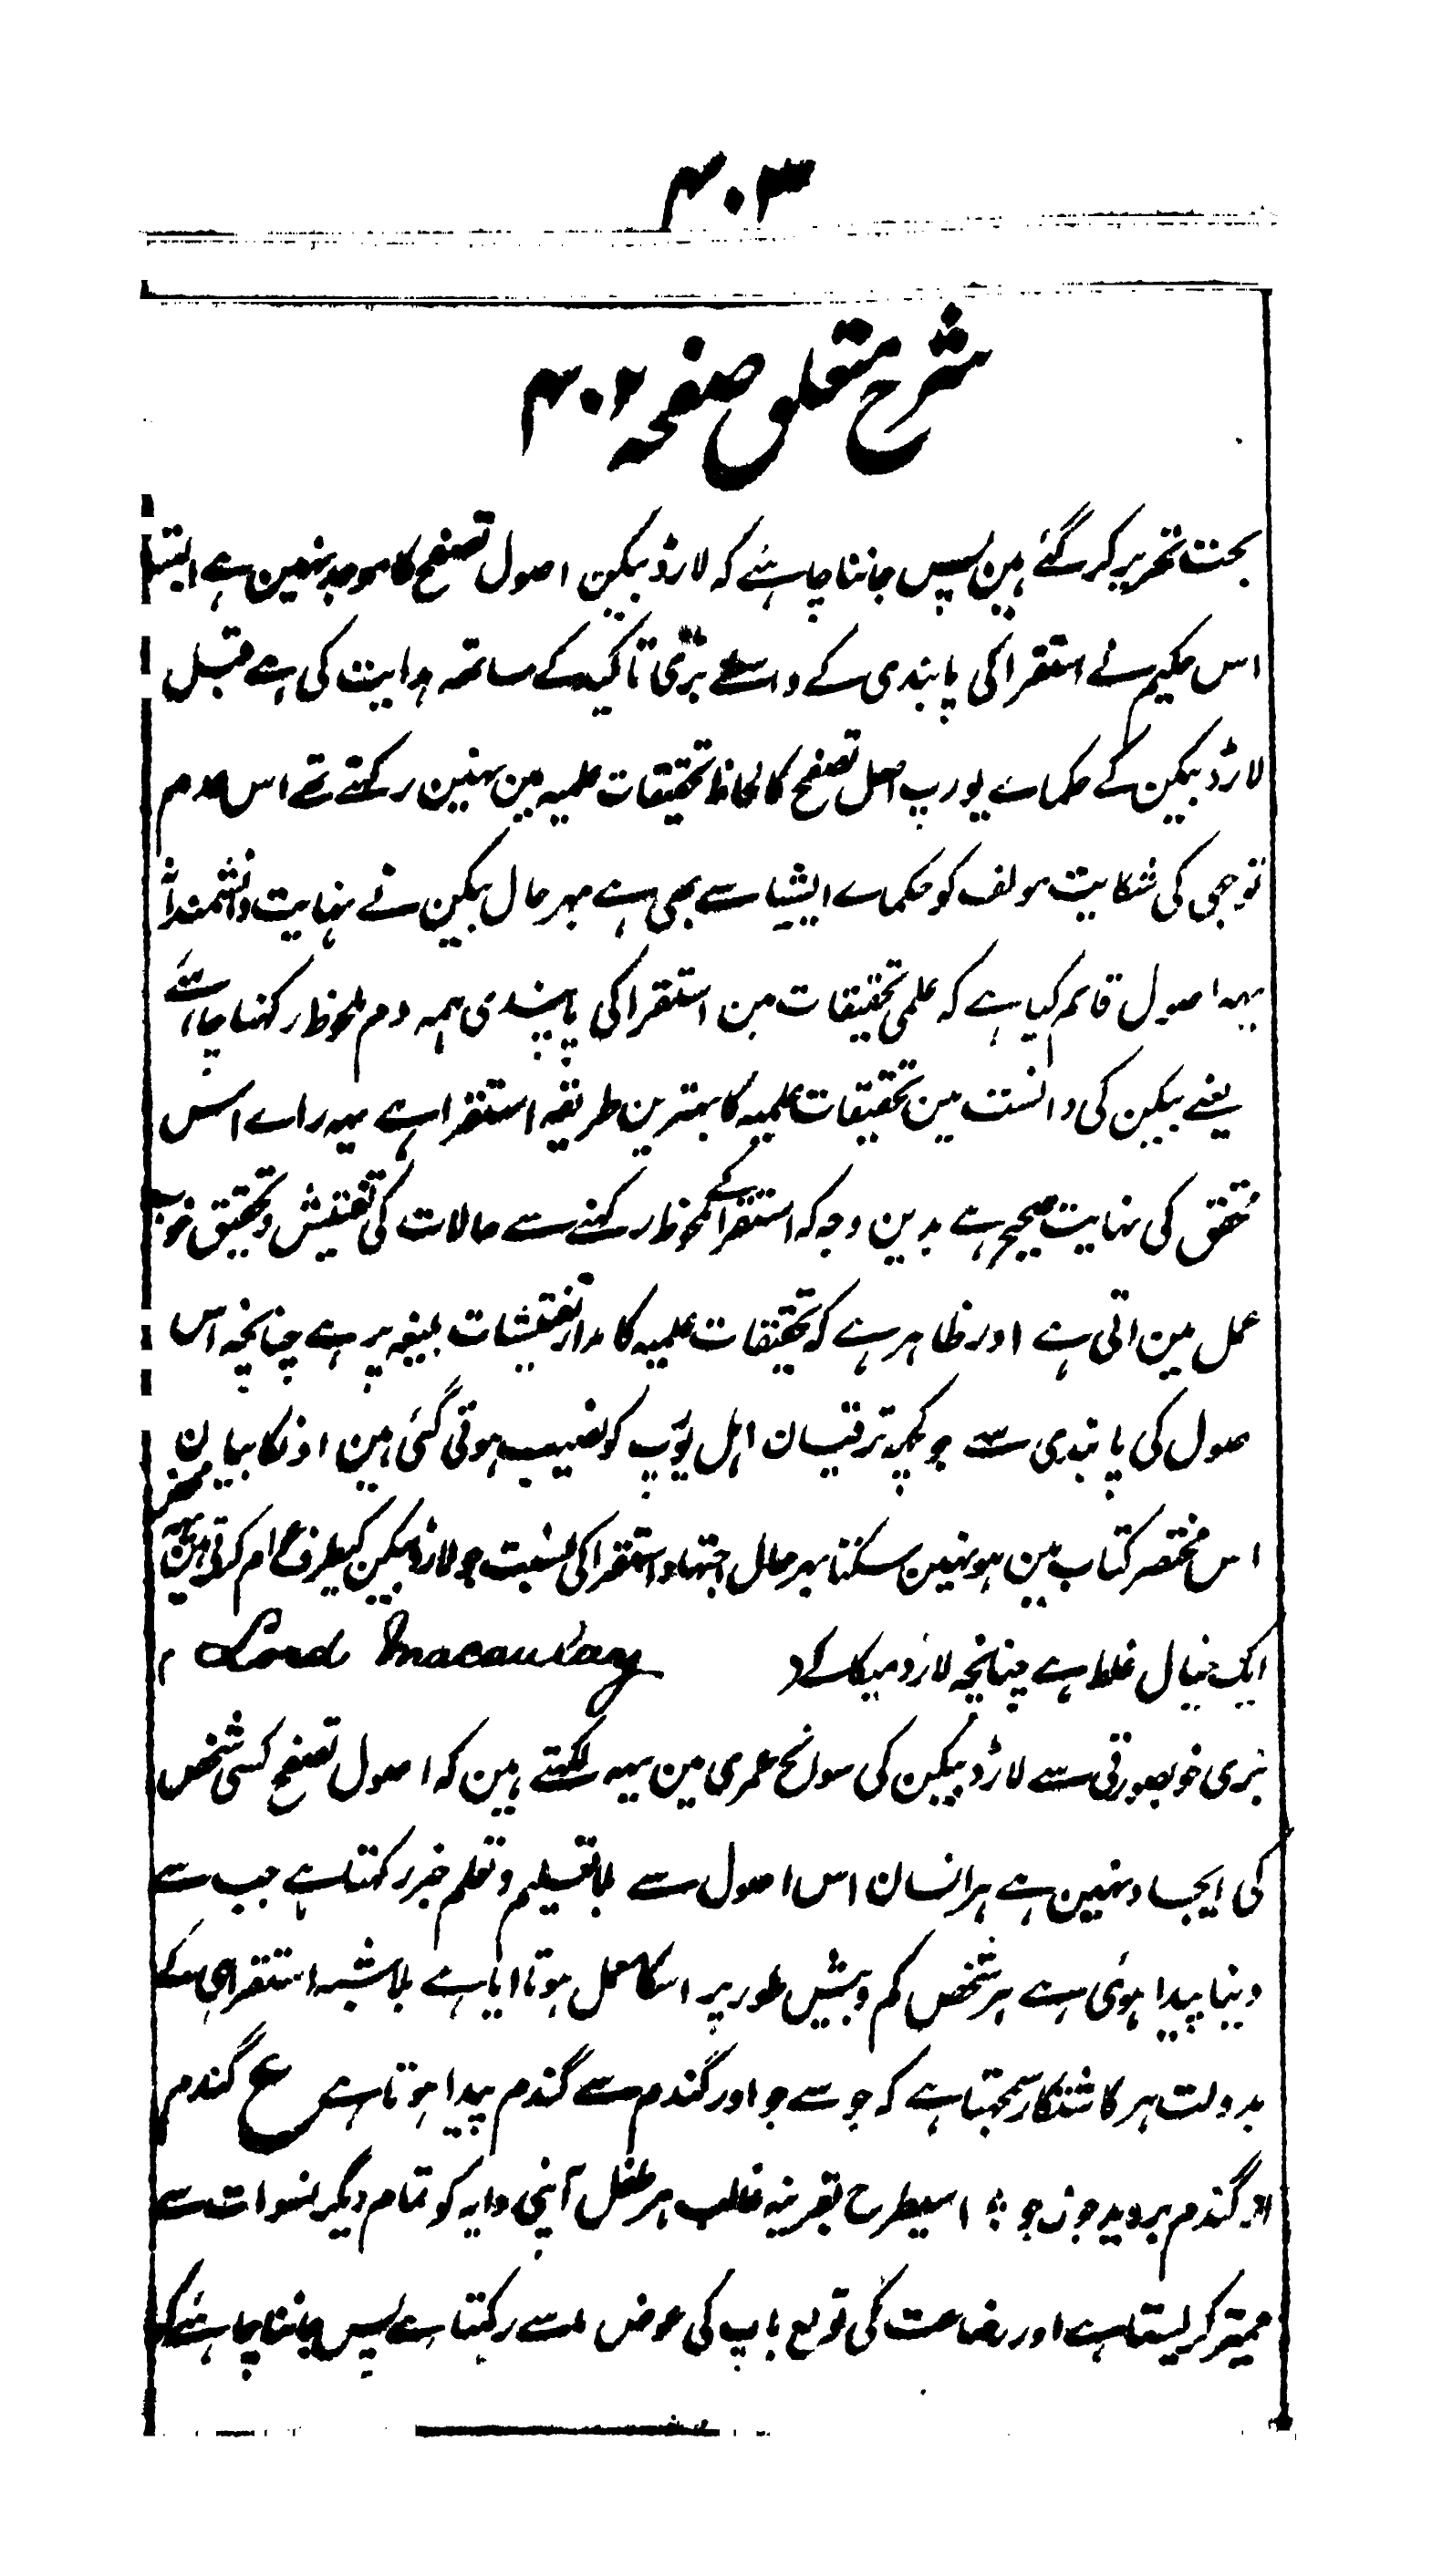 ۴۰۳
شرح متعلق صفحہ ۴۰۲
بحث تحریر کر گئے ہین پس جاننا چاہئے کہ لارڈ بیکن اصول تصفح کا موجد نہین ہے البتہ
اس حکیم نے استقرا کی پابندی کے واسطے بڑی تاکید کے ساتھہ ہدایت کی ہے قبل
لارڈ بیکن کے حکماے یورپ اصل تصفح کا لحاظ تحقیقات علمیہ مین نہین رکھتے تھے اس عدم
توجہی کی شکایت مولف کو حکماے ایشیا سے بھی ہے بہر حال بیکن نے نہایت دانشمندانہ
یہہ اصول قائم کیا ہے کہ علمی تحقیقات مین استقرا کی پابندی ہمہ دم ملحوظ رکھنا چاہئے
یعنے بیکن کی دانست مین تحقیقات علمیہ کا بہترین طریقہ استقرا ہے یہہ راے اس
محقق کی نہایت صحیح ہے بدین وجہ کہ استقرا کے ملحوظ رکھنے سے حالات کی تفتیش و تحقیق خوب
عمل مین اتی ہے اور ظاہر ہے کہ تحقیقات علمیہ کا مدار تفتیشات بلیغہ پر ہے چنانچہ اس
صول کی پابندی سے جو کچھہ ترقیان اہل یورپ کو نصیب ہوتی گئی ہین اونکا بیان
اس مختصر کتاب مین ہو نہین سکتا بہر حال اجتہاد استقرا کی نسبت جو لارڈ بیکن کیطرف عوام کرتے ہین یہہ محض
ایک خیال غلط ہے چنانچہ لارڈ میکالے د Lord Macaulay م
بڑی خوبصورتی سے لارڈ بیکن کی سوانح عمری مین یہہ لکھتے ہین کہ اصول تصفح کسی شخص
کی ایجاد نہین ہے ہر انسان اس اصول سے بلا تعلیم و تعلم خبر رکھتا ہے جب سے
دنیا پیدا ہوئی ہے ہر شخص کم و بیش طور پر اسکا عمل ہوتا ایا ہے بلا شبہہ استقرا ہی کے
بدولت ہر کاشتکار سمجھتا ہے کہ جو سے جو اور گندم سے گندم پیدا ہوتا ہے ع گندم
از گندم بروید جو ز جو ؛ اسیطرح بقرینہ غالب ہر طفل اپنی دایہ کو تمام دیگر نسوات سے
ممیز کر لیتا ہے اور رضاعت کی توقع باپ کی عوض سے رکھتا ہے پس جاننا چاہئے کہ